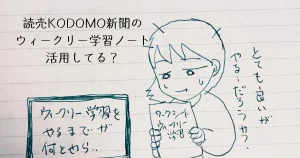 読売KODOMO新聞の
ウィークリー学習ノート
活用してる？
とても良いが
やる…だろうか？
ワークシート
ウィークリー
学習
ウィークリー学習を
やるまでが
何とやら‥